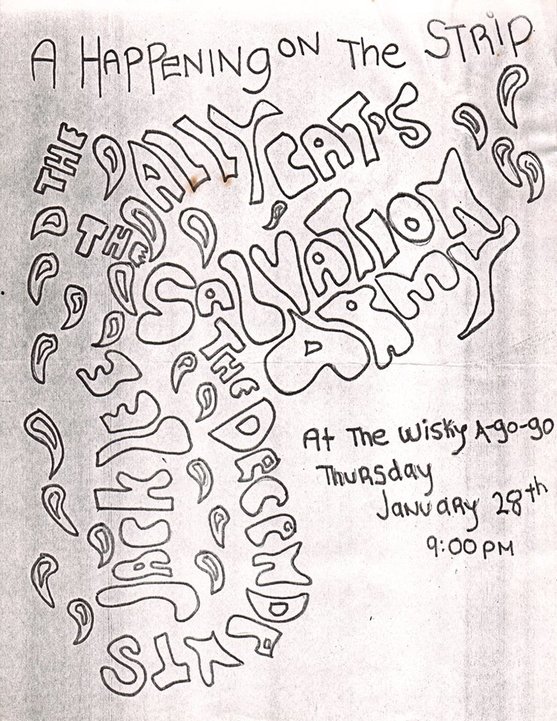 A HAPPENING ON THE STRIP
THE
ALLY CAT'S
THE
SALVATION
ARMY
JACK LEE
THE
DECENDENTS
At The Wisky A-go-go
THURSDAY
JANUARY 28th
9:00 PM